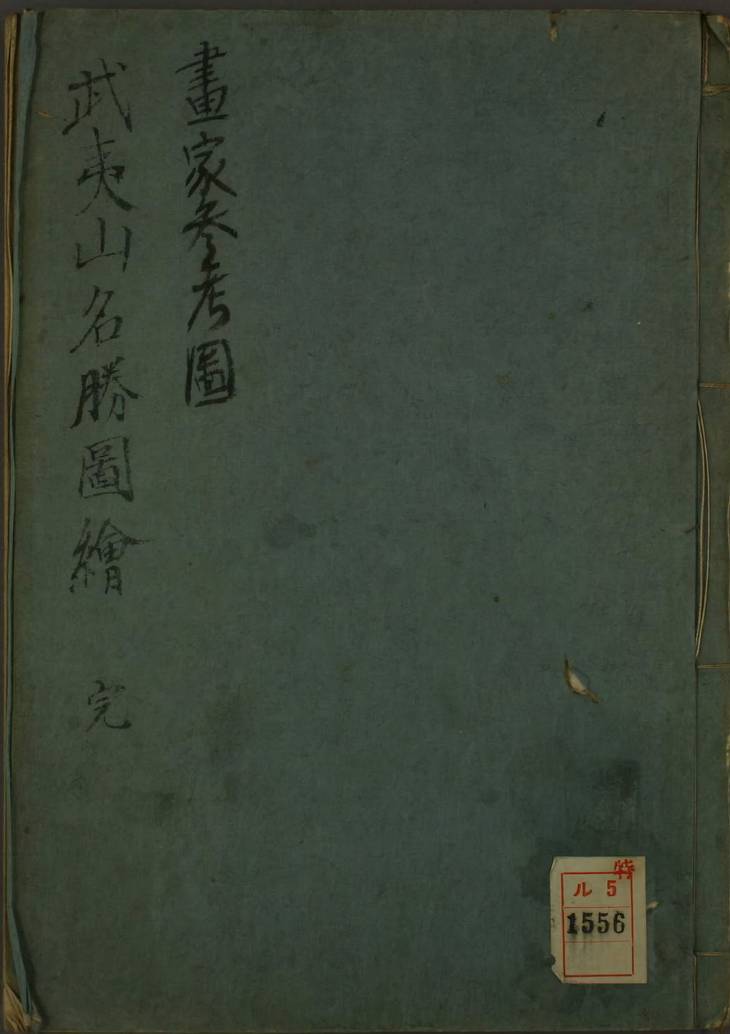 畫家参考圖
武夷山名勝圖繪 完
特
ル 5
1556